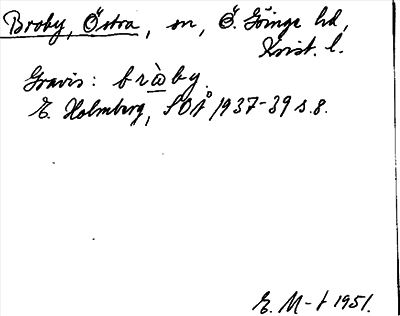 Broby, Östra, sn, Ö. Göinge hd,
Krist. l.
Gravis: bràby.
E. Holmberg, SOÅ 1937-39 s. 8.
E. M-t 1951.